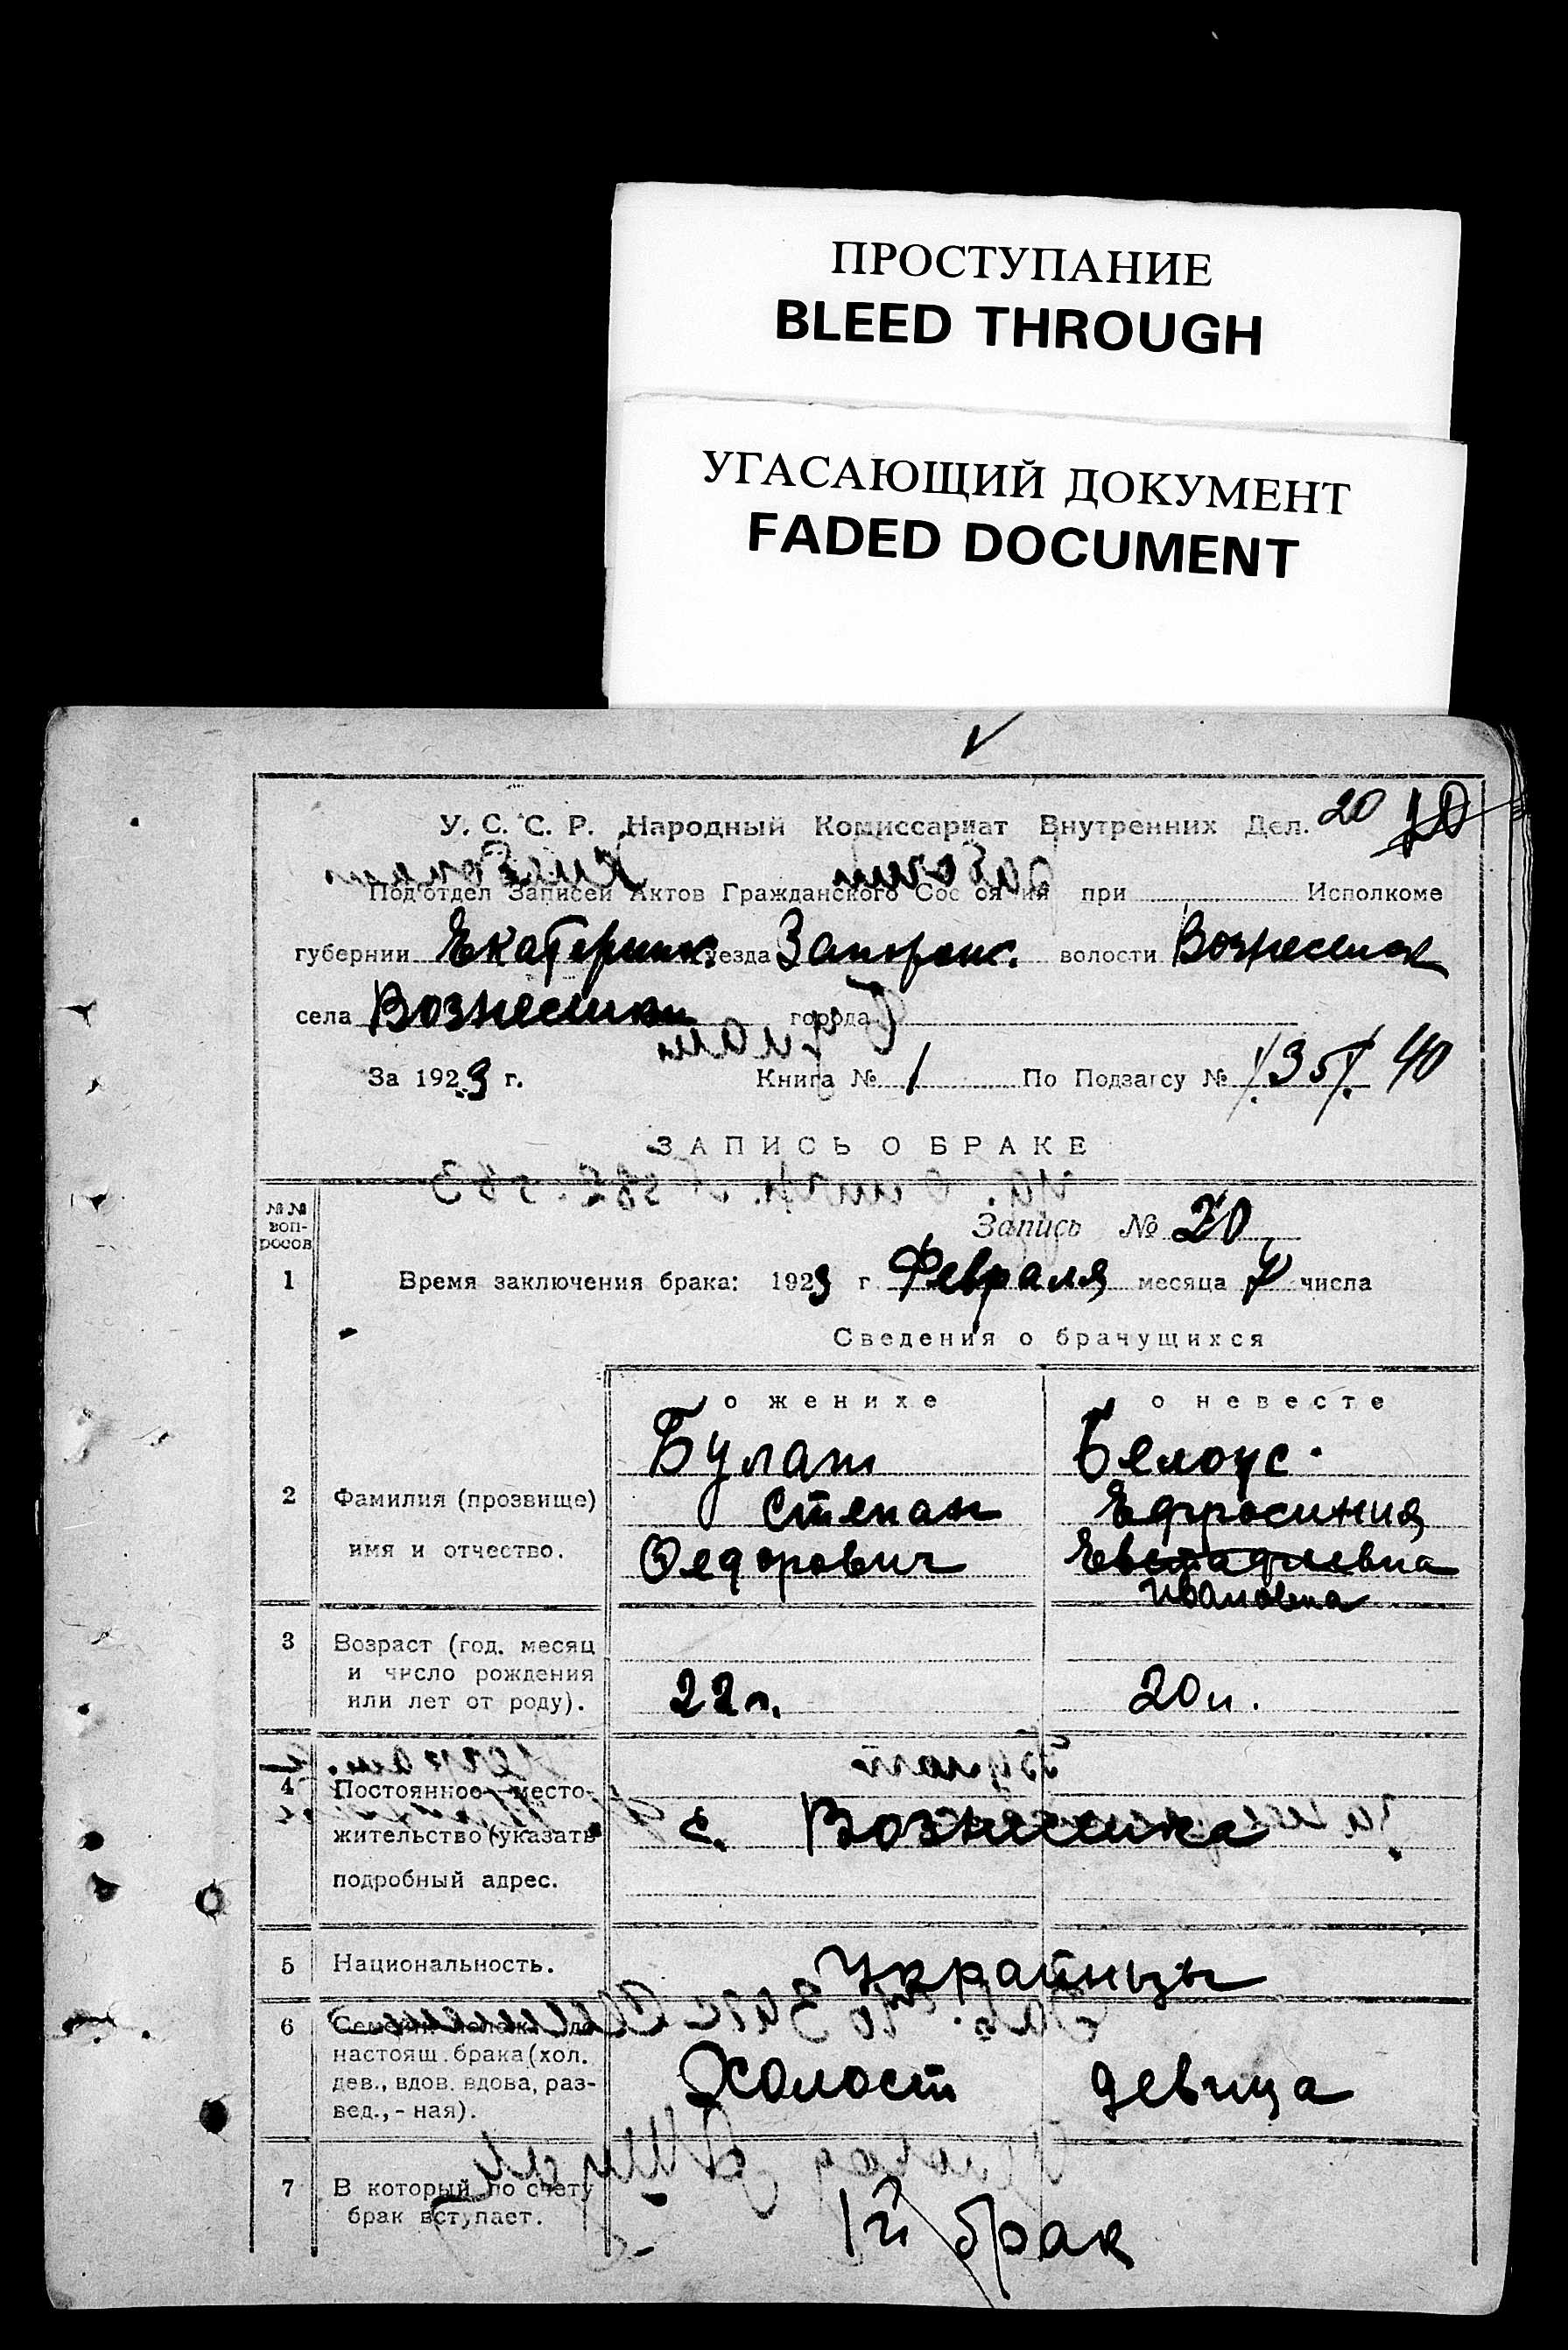 ПРОСТУПАНИЕ
BLEED THROUGH
УГАСАЮЩИЙ ДОКУМЕНТ
FADED DOCUMENT
У. С. С. Р. Народный Комиссариат Внутренних Дел. 20 10
Под'отдел Записей Актов Гражданского Состояния при Исполкоме
губернии Екатеринк. уезда Запорож. волости Вознесенск
села Вознесенки города
За 1923 г. Книга № 1 По Подзагсу № 135 40
ЗАПИСЬ О БРАКЕ
№№ воп-
росов
Запись № 20
1 Время заключения брака: 1923 г. Февраля месяца 7 числа
Сведения о брачущихся
о женихе о невесте
Булат Белоус
2 Фамилия (прозвище) Степан Ефросиния
имя и отчество. Федорович Евстафиевна
Ивановна
3 Возраст (год, месяц
и число рождения
или лет от роду). 22 л. 20 л.
4 Постоянное место-
жительство (указать с. Вознесенка
подробный адрес.
5 Национальность. Украйнцы
6 Семейн. полож. до
настоящ. брака (хол.
дев., вдов. вдова, раз- Холост девица
вед., - ная).
7 В который по счету
брак вступает. 1й брак